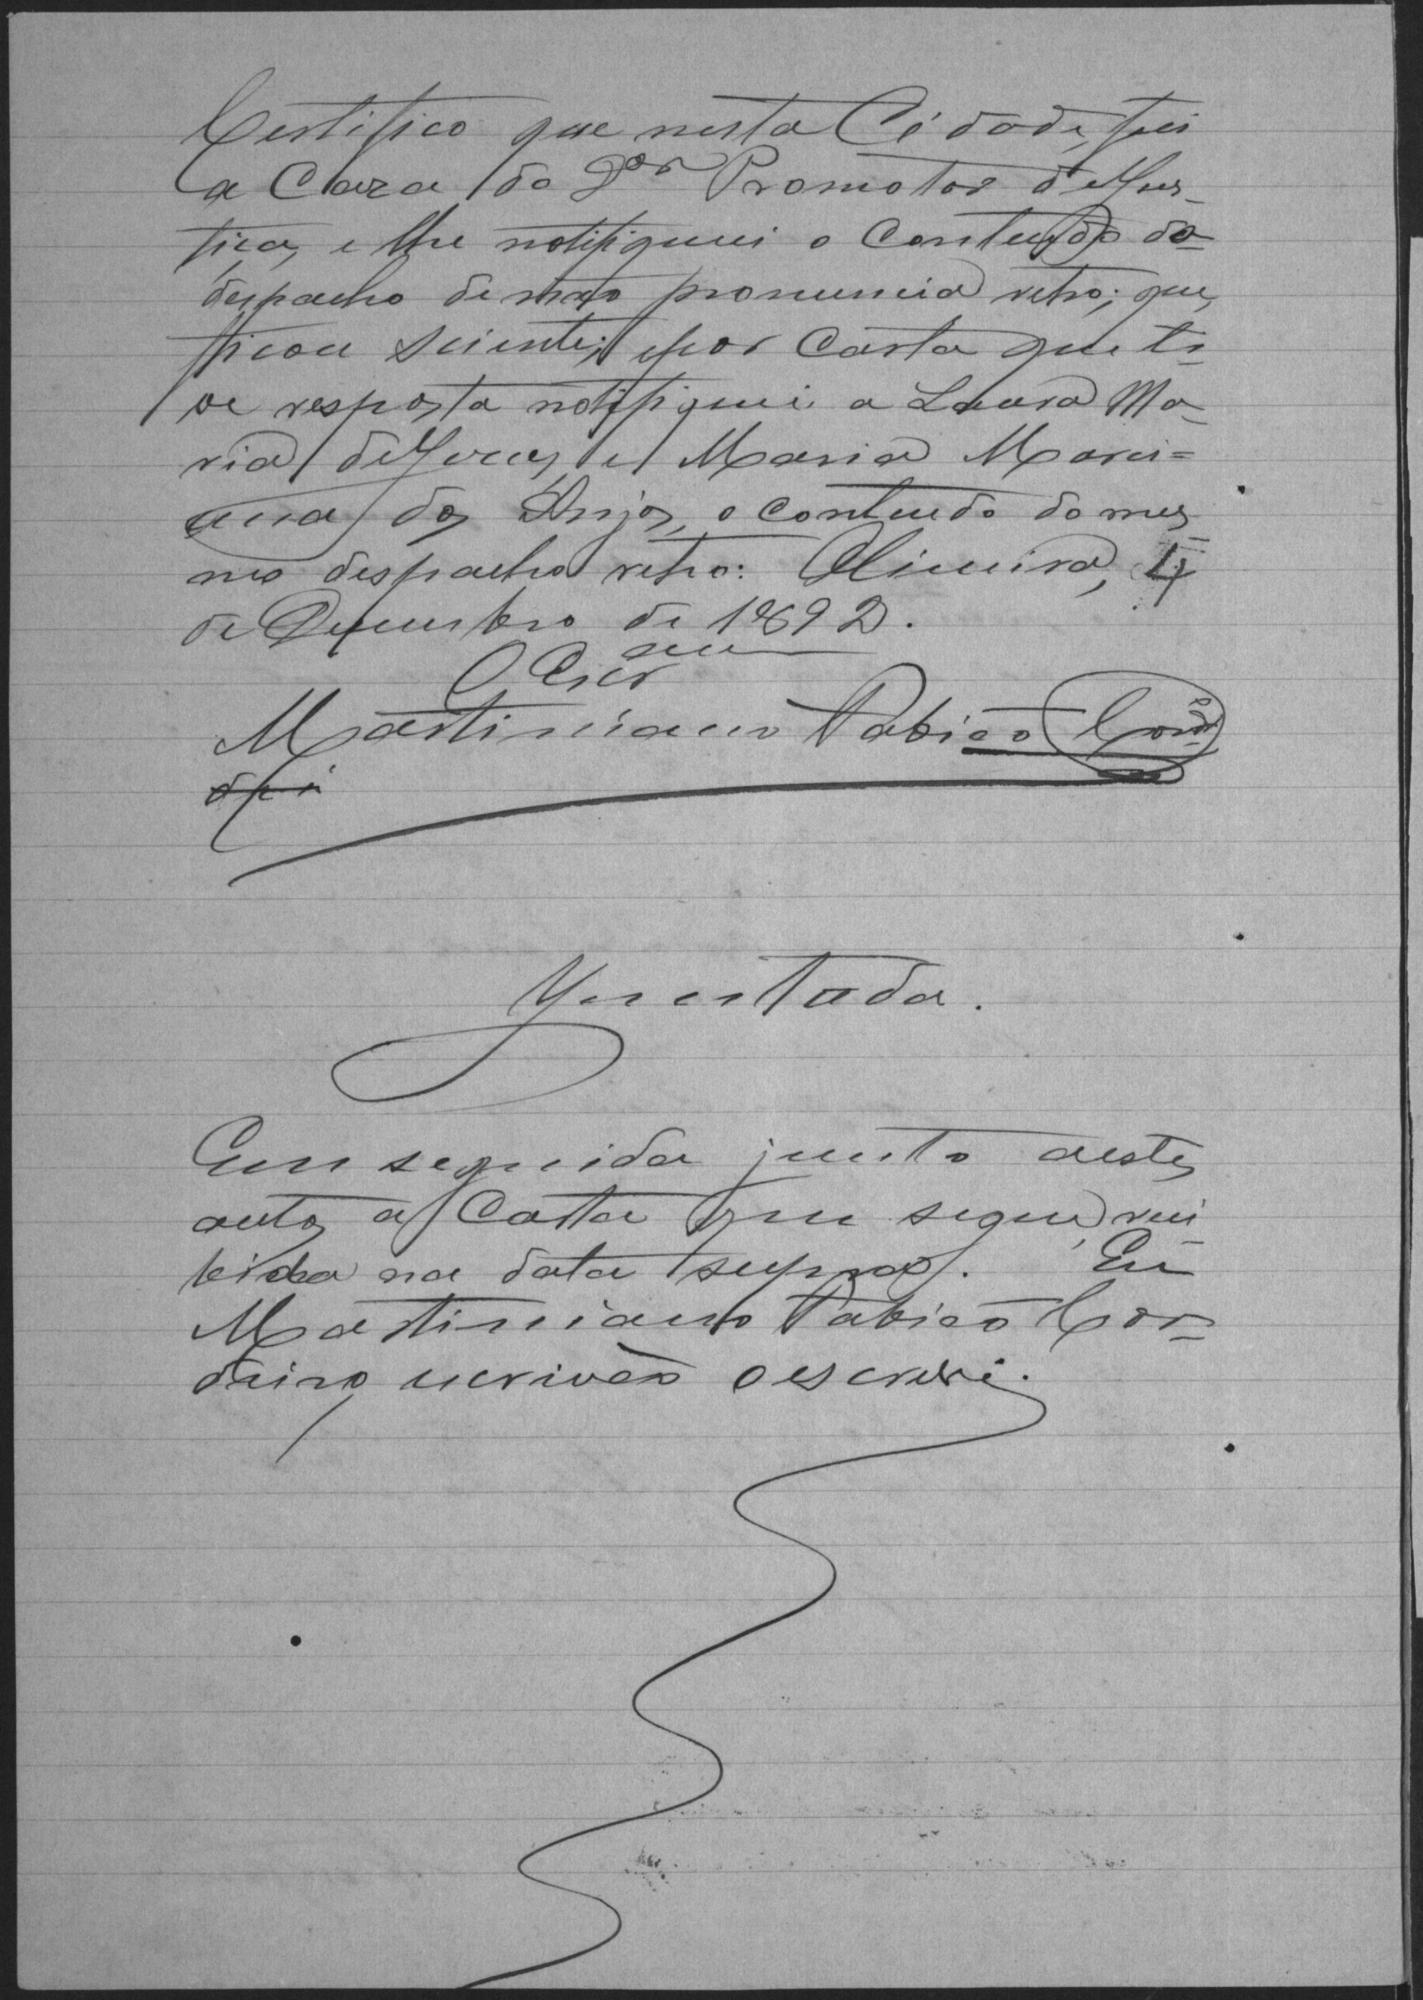 Certifico que nesta Cidade, fui
a Caza do Dor Promotor deJus-
tiça, e lhe notifiquei o Contendo do
despacho de não pronuncia retro; que,
ficou sciente; epor Carta que ti-
ve resposta notifiquei a Laura Ma-
ria deJesus, e Maria Marci-
ana dos Anjos, o contendo do mes-
mo despacho retro: Oliveira, 4
de Dezembro de 1892.
O Escrm
Martiniano Fabião Cor
dei
Juntada.
Em seguida junto aestes
autos a Carta que segue, rece
bida na data supra. Eu
Martiniano Fabião Cor-
deiro, escrivão o escrevi.